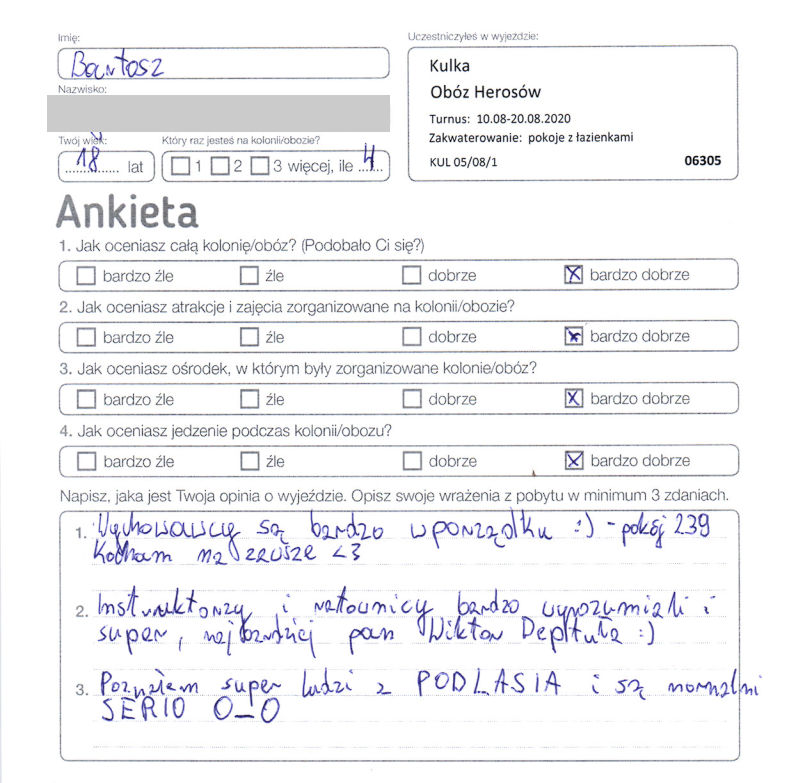 Imię:
Bartosz
Nazwisko:
Twój wiek:
18 lat
Który raz jesteś na kolonii/obozie?
1 2 3 więcej, ile 4
Uczestniczyłeś w wyjeździe:
Kulka
Obóz Herosów
Turnus: 10.08-20.08.2020
Zakwaterowanie: pokoje z łazienkami
KUL 05/08/1 06305
Ankieta
1. Jak oceniasz całą kolonię/obóz? (Podobało Ci się?)
bardzo źle źle dobrze bardzo dobrze
2. Jak oceniasz atrakcje i zajęcia zorganizowane na kolonii/obozie?
bardzo źle źle dobrze bardzo dobrze
3. Jak oceniasz ośrodek, w którym były zorganizowane kolonie/obóz?
bardzo źle źle dobrze bardzo dobrze
4. Jak oceniasz jedzenie podczas kolonii/obozu?
bardzo źle źle dobrze bardzo dobrze
Napisz, jaka jest Twoja opinia o wyjeździe. Opisz swoje wrażenia z pobytu w minimum 3 zdaniach.
1. Wychowawcy są bardzo wporządku :) - pokój 239
Kocham na zawsze <3
2. Instruktorzy i ratownicy bardzo wyrozumiali i
super, najbardziej pan Wiktor Deptuła :)
3. Poznałem super ludzi z PODLASIA i są normalni
SERIO O_O